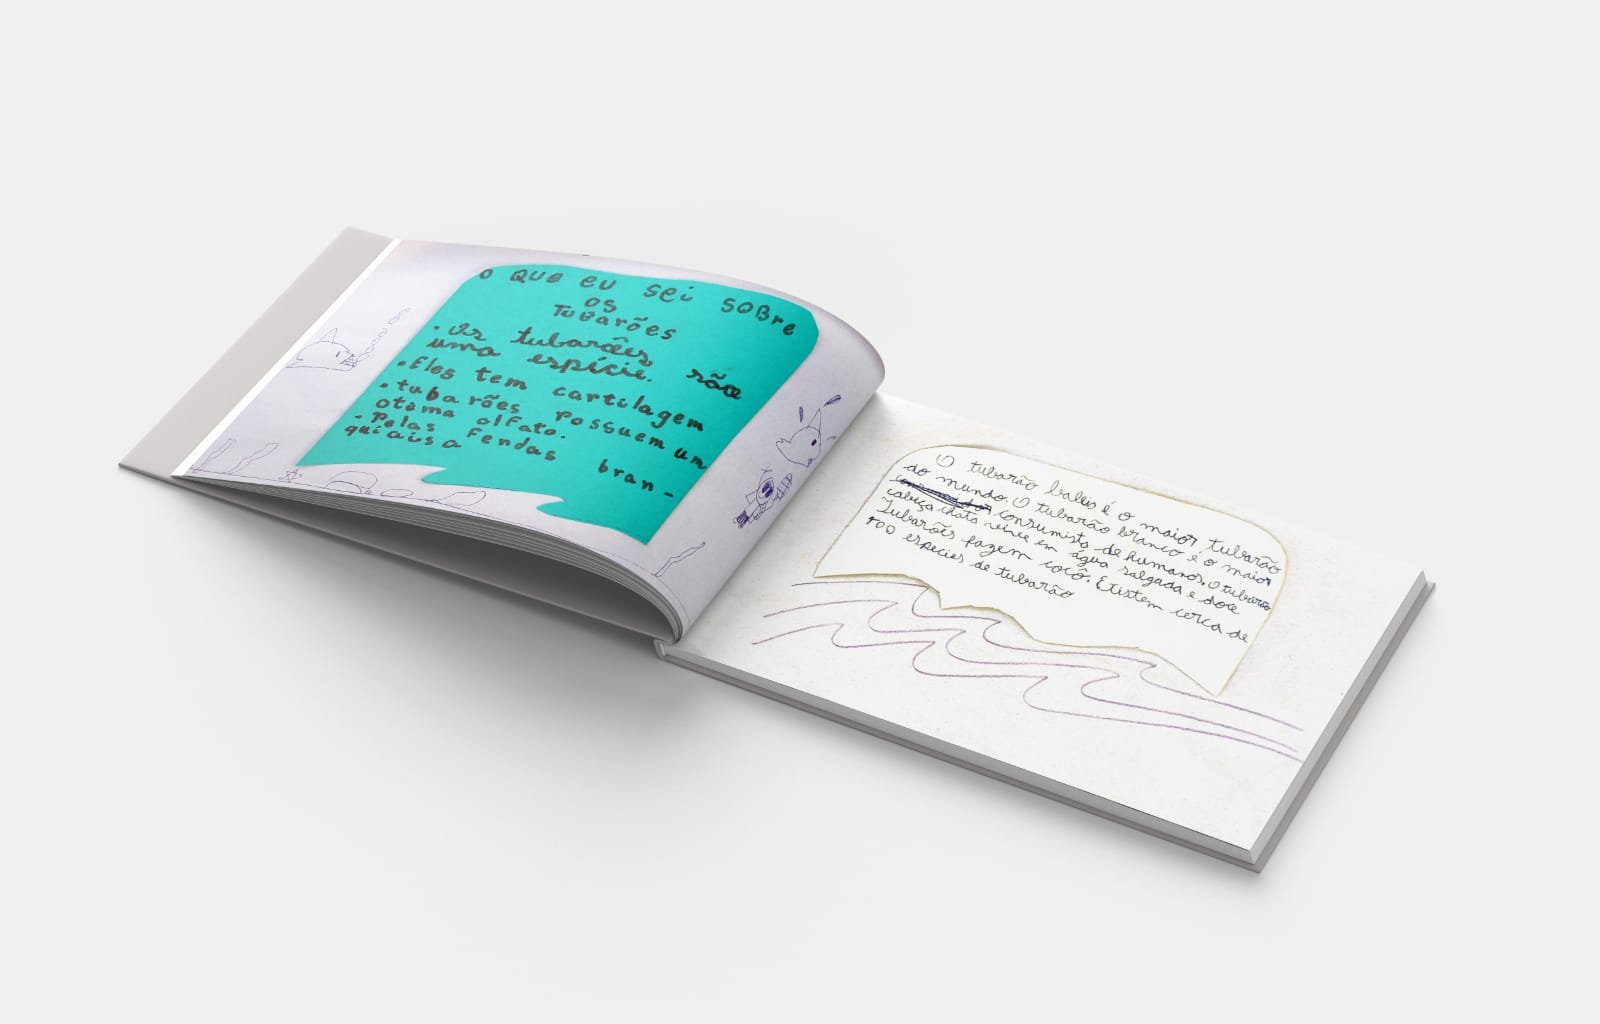 O QUE EU SEI SOBRE
OS
TUBARÕES
• Os tubarões são
uma espécie.
• Eles tem cartilagem
• tubarões possuem um
otima olfato.
- Pelas Fendas bran-
quiais a
O tubarão baleia é o maior tubarão
do mundo. O tubarão branco é o maior
consumista de humanos. O tubarão
cabeça-chata vive em água salgada e doce.
Tubarões fazem cocô. Existem cerca de
espécies de tubarão